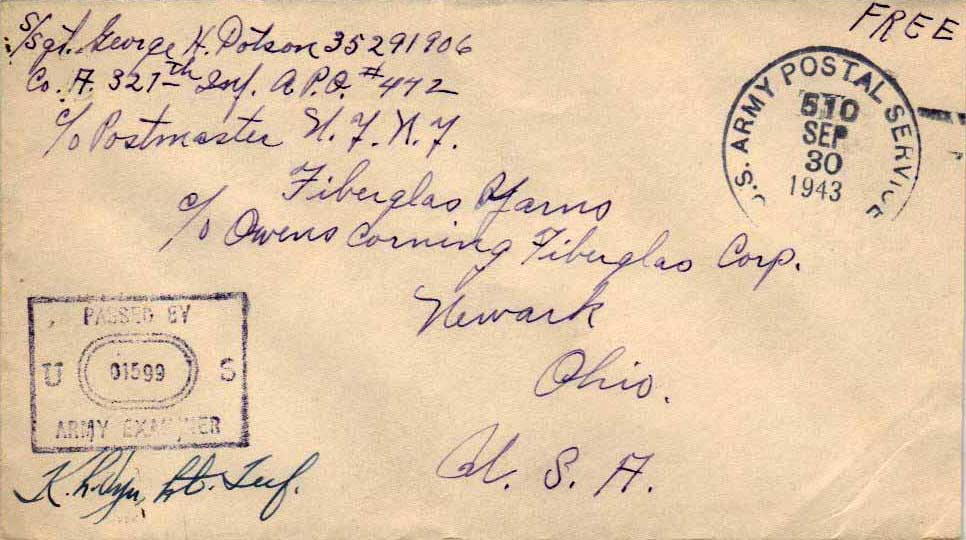 FREE
S/Sgt. George H. Dotson 35291906
Co. A. 327th Inf. A.P.O. #472
c/o Postmaster N.Y. N.Y.
U.S. ARMY POSTAL SERVICE
510
SEP
30
1943
Fiberglas Yarns
c/o Owens Corning Fiberglas Corp.
Newark
Ohio.
U. S. A.
PASSED BY
U 01599 S
ARMY EXAMINER
Lt. Inf.